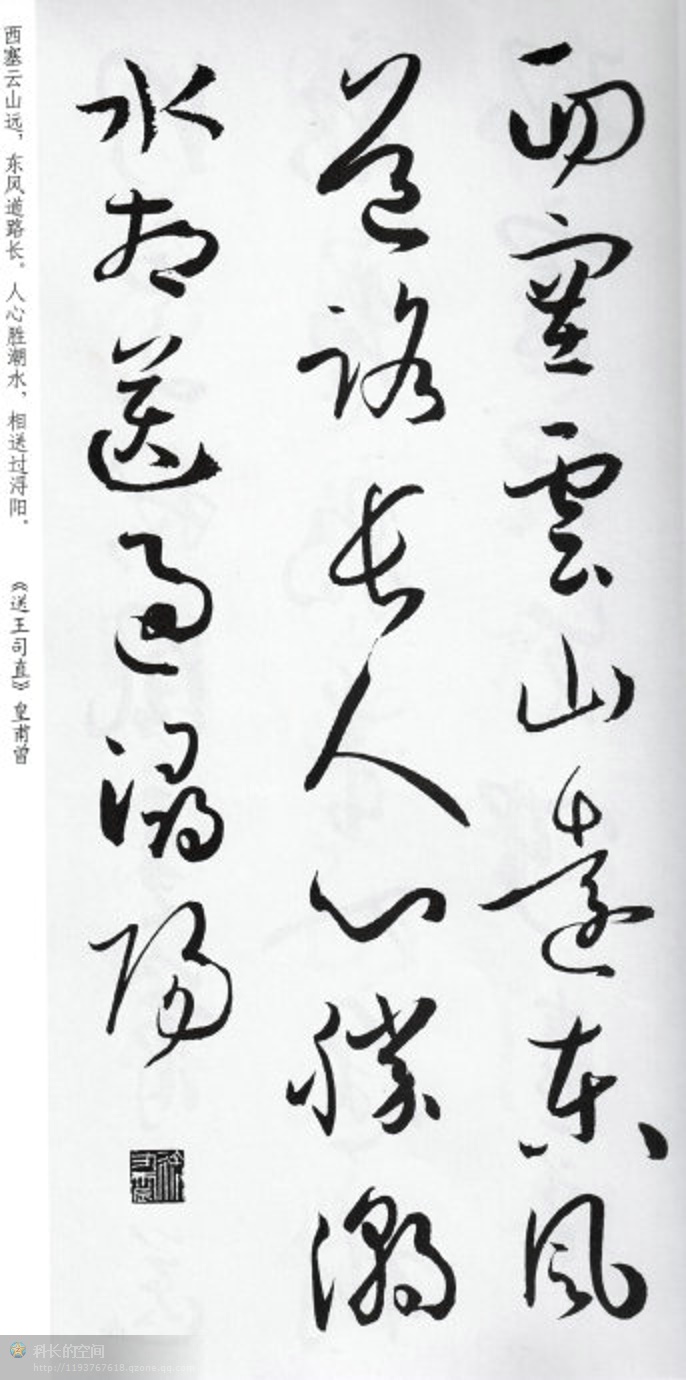 西塞雲山遠東風
道路長人心勝潮
水相送過潯陽
西塞云山远，东风道路长。人心胜潮水，相送过浔阳。 《送王司直》皇甫曾
科长的空间
http://1193767618.qzone.qq.com